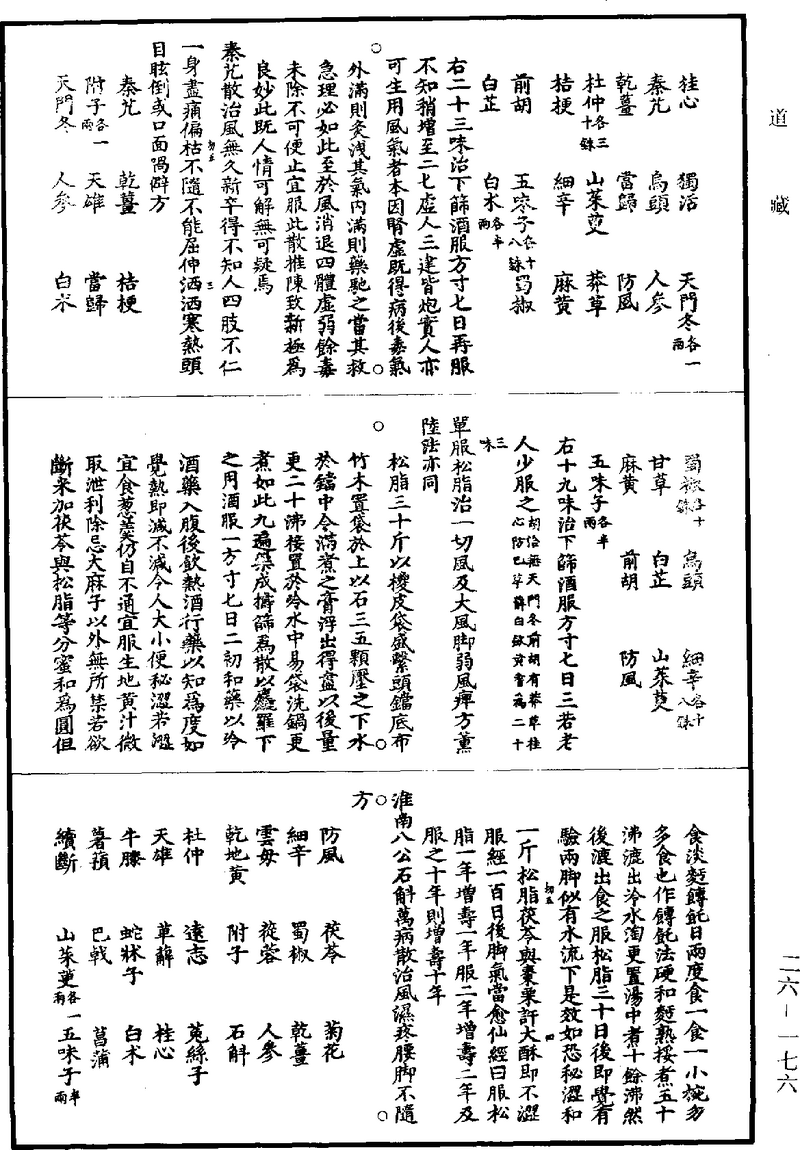 道藏
桂心 獨活 天門冬各一兩
秦艽 烏頭 人參
乾薑 當歸 防風
杜仲各三十銖 山茱萸 莽草
桔梗 細辛 麻黃
前胡 五味子各十八銖 蜀椒
白芷 白朮各半兩
右二十三味治下篩酒服方寸匕日再服
不知稍增至二匕虛人三建皆炮實人亦
可生用風氣者本因腎虛既得病後毒氣
外滿則灸泄其氣內滿則藥馳之當其救
急理必如此至於風消退四體虛弱餘毒
未除不可便止宜服此散推陳致新極為
良妙此既人情可解無可疑焉
秦艽散治風無久新卒得不知人四肢不仁
一身盡痛偏枯不隨不能屈伸洒洒寒熱頭
目眩倒或口面喎僻方
秦艽 乾薑 桔梗
附子各一兩 天雄 當歸
天門冬 人參 白朮
蜀椒各十銖 烏頭 細辛各十八銖
甘草 白芷 山茱萸
麻黃 前胡 防風
五味子各半兩
右十九味治下篩酒服方寸匕日三若老
人少服之胡洽無天門冬前胡有莽草桂心防已萆薢白蘞黃耆為二十三味
單服松脂治一切風及大風脚弱風痺方薰
陸法亦同
松脂三十斤以椶皮袋盛繫頭鐺底布
竹木置袋於上以石三五顆壓之下水
於鐺中令滿煮之膏浮出得盡以後量
更二十沸接置於冷水中易袋洗鍋更
煮如此九遍藥成擣篩為散以麤羅下
之用酒服一方寸匕日二初和藥以冷
酒藥入腹後飲熱酒行藥以知為度如
覺熱即減不減令人大小便秘澀若澀
宜食葱羹仍自不通宜服生地黃汁微
取泄利除忌大麻子以外無所禁若欲
斷米加茯苓與松脂等分蜜和為圓但
食淡麪餺飥日兩度食一食一小椀勿
多食也作餺飥法硬和麪熟挼煮五十
沸漉出冷水淘更置湯中煮十餘沸然
後漉出食之服松脂三十日後即覺有
驗兩脚似有水流下是效如恐秘澀和
一斤松脂茯苓與棗栗許大酥即不澀
服經一百日後脚氣當愈仙經曰服松
脂一年增壽一年服二年增壽二年及
服之十年則增壽十年
淮南八公石斛萬病散治風濕疼腰脚不隨
方
防風 茯苓 菊花
細辛 蜀椒 乾薑
雲母 蓯蓉 人參
乾地黃 附子 石斛
杜仲 遠志 菟絲子
天雄 萆薢 桂心
牛膝 蛇牀子 白朮
薯蕷 巴戟 菖蒲
續斷 山茱萸各一兩 五味子半兩
二六－一七六